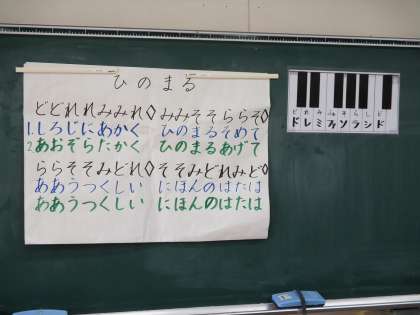 ひのまる
どどれれみみれ◇ みみそそららそ◇
1.しろじにあかく ひのまるそめて
2.あおぞらたかく ひのまるあげて
ららそそみみれ◇ そそみどれみど◇
ああうつくしい にほんのはたは
ああうつくしい にほんのはたは
ど れ み ふぁ そ ら し ど
ド レ ミ ファ ソ ラ シ ド